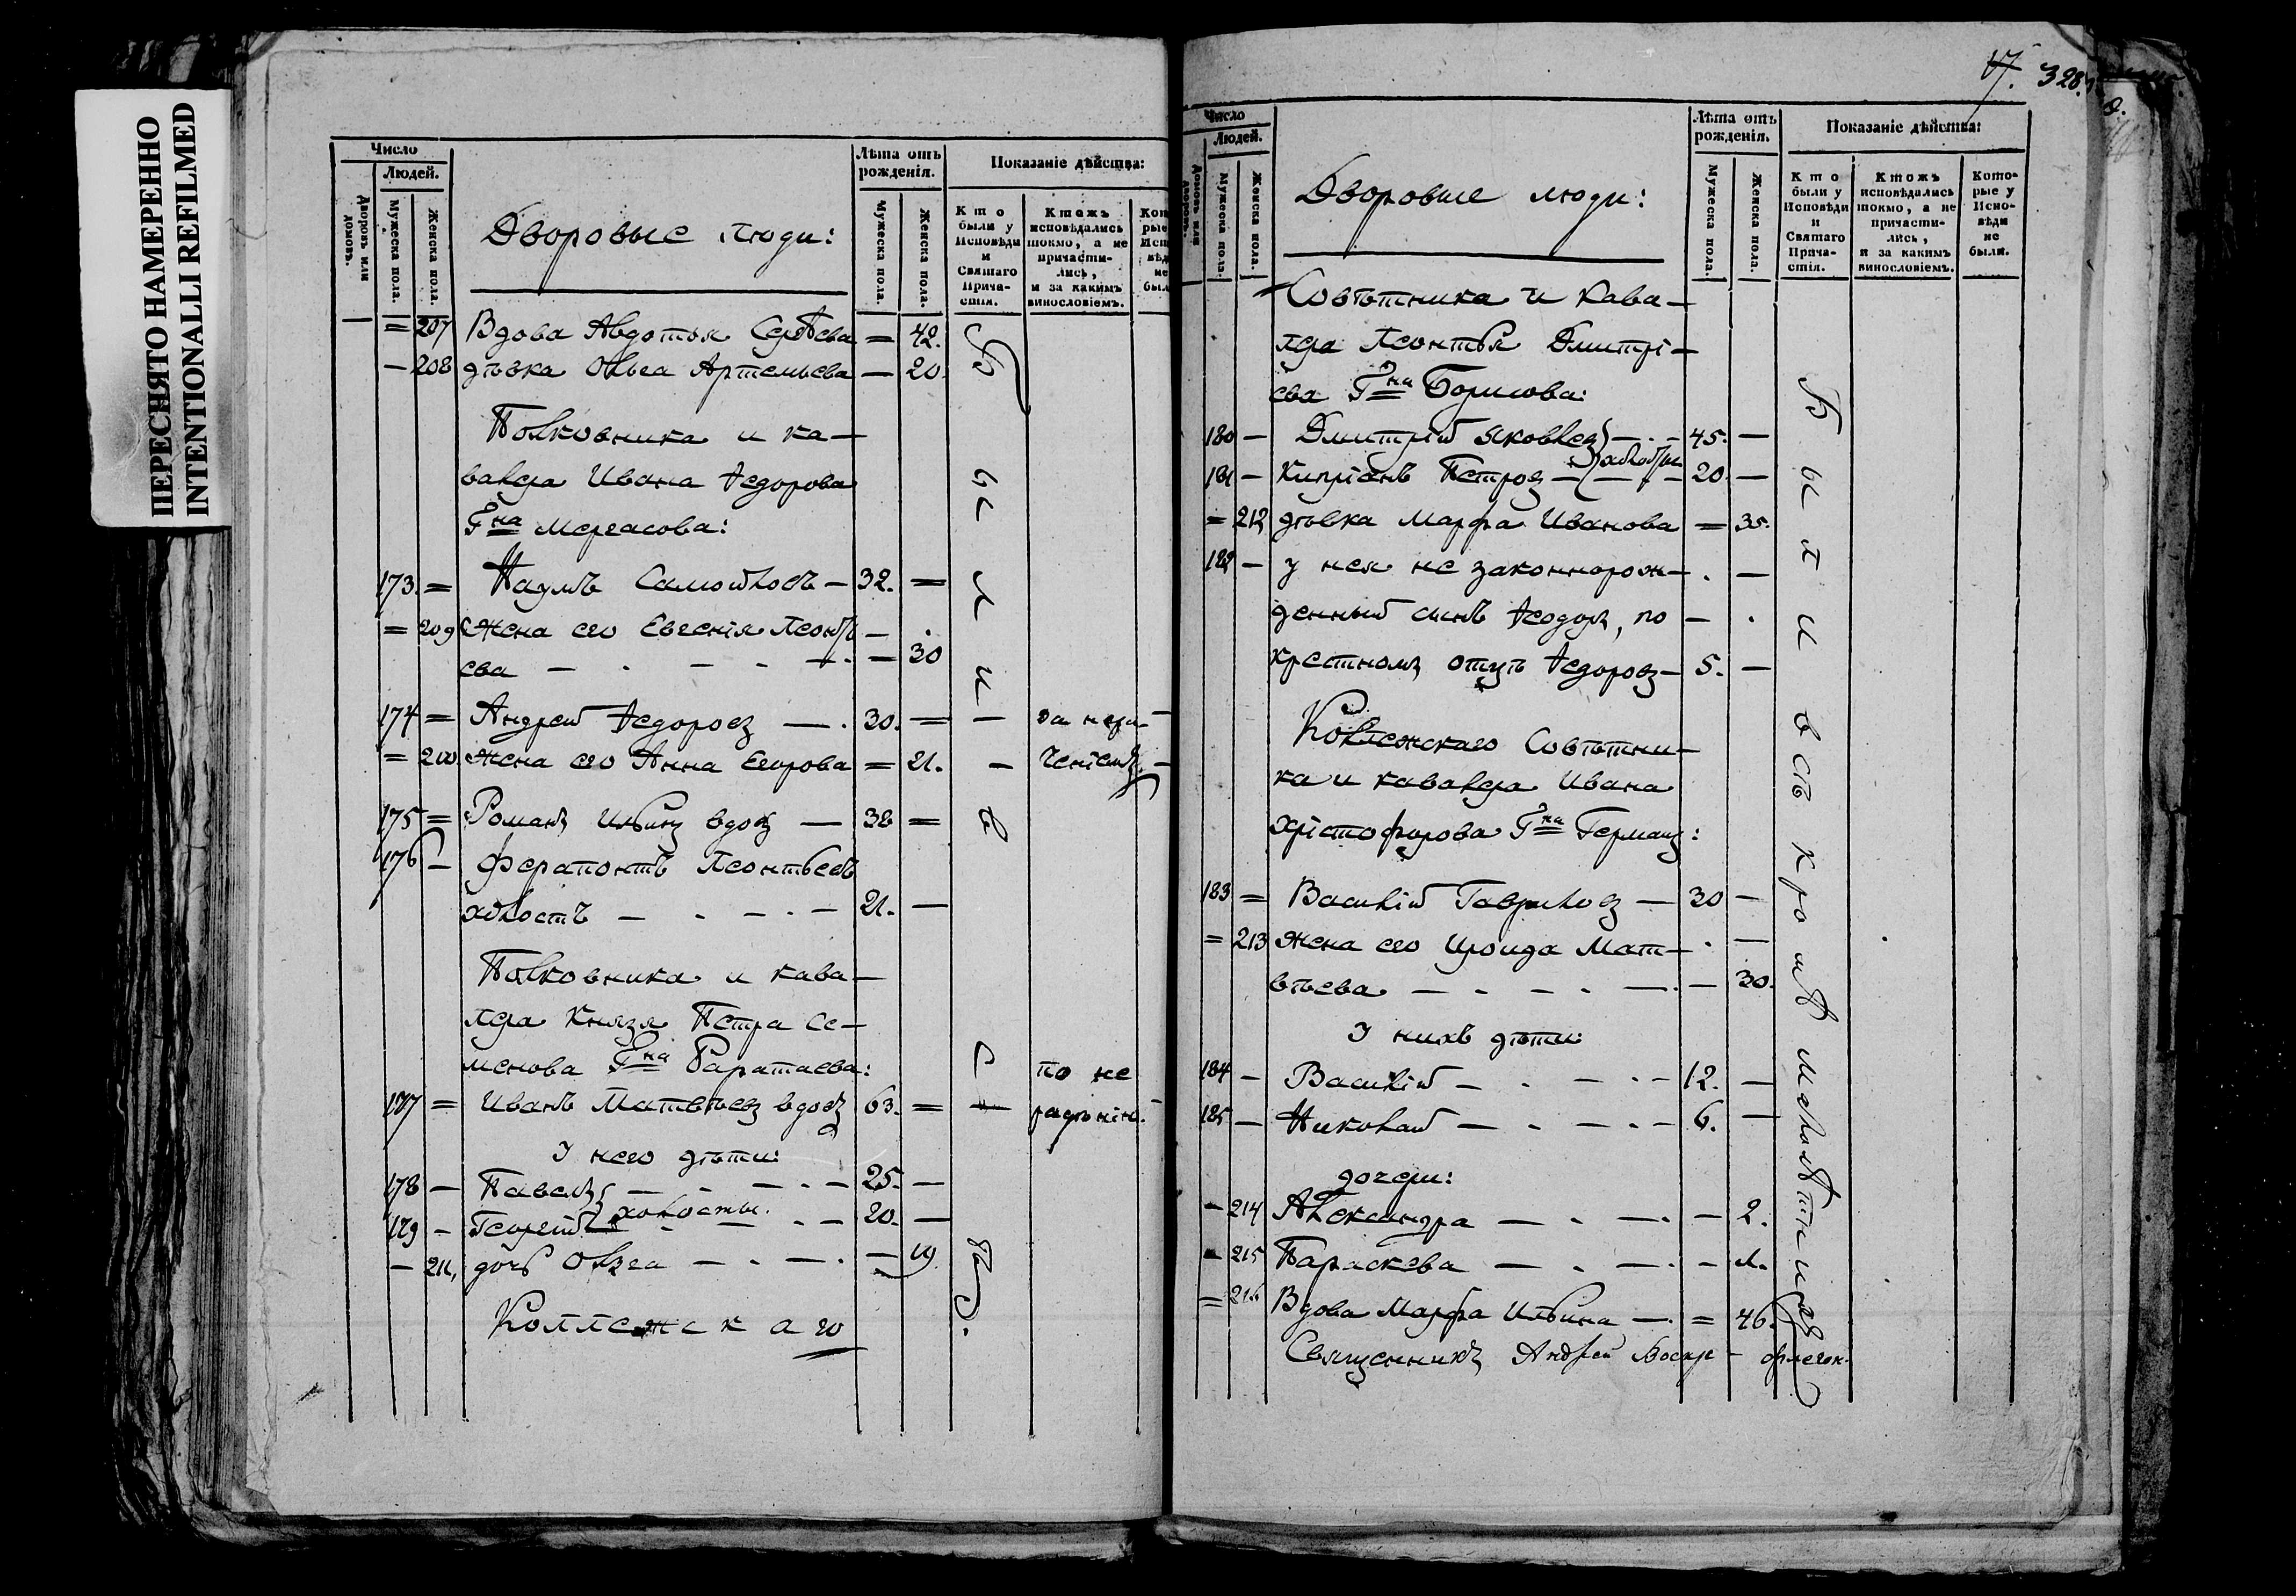 ПЕРЕСНЯТО НАМЕРЕННО
INTENTIONALLI REFILMED
Число
Людей.
Дворовъ или домовъ.
Мужеска пола.
Женска пола.
Дворовые люди:
Лѣта отъ рожденія.
Мужеска пола.
Женска пола.
Показаніе дѣйства:
Кто были у Исповѣди и Святаго Прича-стія.
Ктожъ исповѣдались токмо, а не причасти-лись, и за какимъ винословіемъ.
= 207 Вдова Авдотья = 42.
— 208 дѣвка Ольга Артемьева — 20.
Полковника и ка—
валера Ивана Ѳедорова
Гна Мергасова:
173. = Наумъ Самойловъ — 32. =
= 209 Жена его Евгенія Леонть —
ева — 30
174 = Андрей Ѳедоровъ — 30. = — за нера—
= 210. Жена его Анна Егорова = 21. — ченіемъ. —
175 = Романъ Ильинъ вдовъ — 38 =
176 — Ферапонтъ Леонтьевъ
холостъ — 21. —
Полковника и кава—
лера Князя Петра Се—
менова Гна Баратаева:
177 = Иванъ Матвѣевъ вдовъ 63. = — по не радѣнію.
У него дѣти:
178 — Павелъ — 25. —
179 — Георгій холосты. 20. —
— 211, дочь Ольга — 19.
Коллежскаго
Были въ с
17. 328.
Число
Людей.
Домовъ или дворовъ.
Мужеска пола.
Женска пола.
Дворовые люди:
Лѣта отъ рожденія.
Мужеска пола.
Женска пола.
Показаніе дѣйства:
Кто были у Исповѣди и Святаго Прича-стія.
Ктожъ исповѣдались токмо, а не причасти-лись, и за какимъ винословіемъ.
Кото-рые у Испо-вѣди не были.
Совѣтника и кава—
лера Леонтья Дмитрі—
ева Гна Борисова:
180 — Дмитрій Яковлевъ — 45. —
181 — Кипріанъ Петровъ — холосты — 20. —
= 212 дѣвка Марфа Иванова = 35.
182 — у нея не законнорож—
денный сынъ Ѳеодоръ, по —
крестномъ отцѣ Ѳедоровъ — 5. —
Коллежскаго Совѣтни—
ка и кавалера Ивана
Христофорова Гна Германъ:
183 = Василій Гавриловъ — 30 —
= 213 Жена его Ироида Мат—
вѣева — 30.
У нихъ дѣти:
184 — Василій — 12. —
185 — Николай — 6. —
дочери:
— 214 Александра — 2.
— 215 Параскева — 1.
= 216 Вдова Марфа Ильина — = 46.
Были всѣ кромѣ малолѣтнихъ
Священникъ Андрей